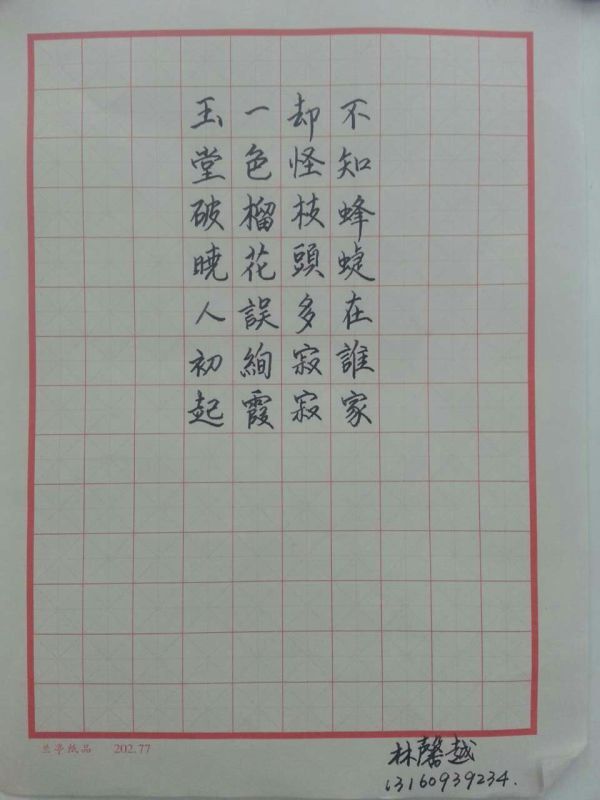 玉堂破曉人初起
一色榴花誤絢霞
却怪枝頭多寂寂
不知蜂蜨在誰家
兰亭纸品 202.77
林馨越
13160939234.